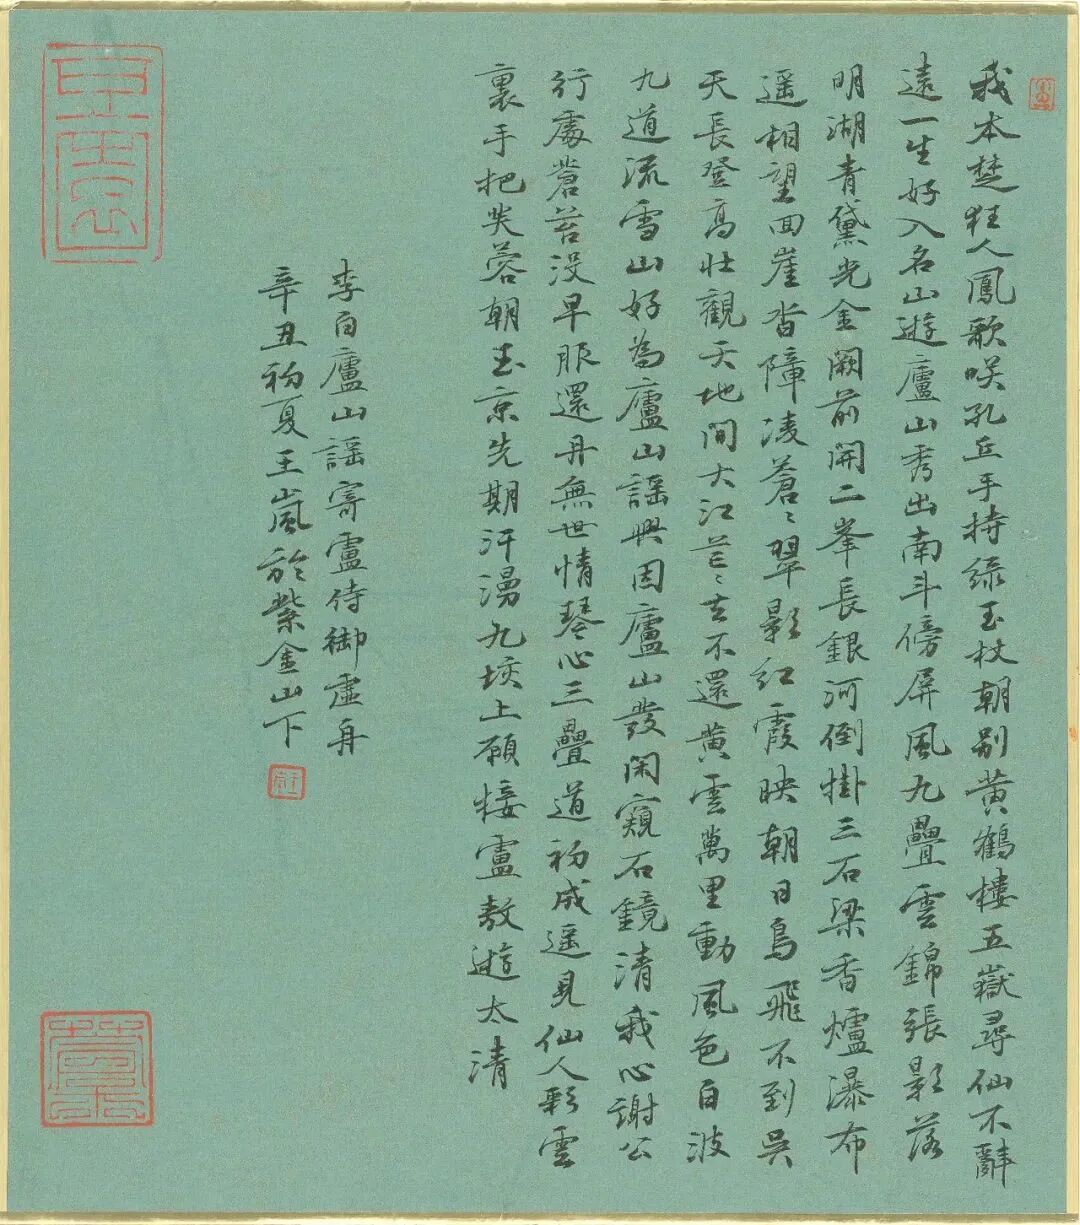 我本楚狂人鳳歌咲孔丘手持綠玉杖朝別黃鶴樓五嶽尋仙不辭
遠一生好入名山遊廬山秀出南斗傍屏風九疊雲錦張影落
明湖青黛光金闕前開二峯長銀河倒掛三石梁香爐瀑布
遥相望回崖沓障凌蒼〻翠影紅霞映朝日鳥飛不到吳
天長登高壯觀天地間大江茫〻去不還黃雲萬里動風色白波
九道流雪山好為廬山謠興因廬山發閑窺石鏡清我心謝公
行處蒼苔沒早服還丹無世情琴心三疊道初成遥見仙人彩雲
裏手把芙蓉朝玉京先期汗漫九垓上願接盧敖遊太清
李白廬山謠寄盧侍御虛舟
辛丑初夏王嵐於紫金山下